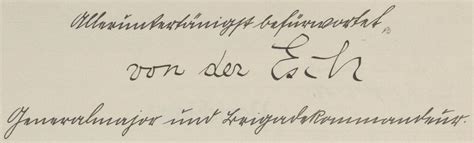 Alleruntertänigst befürwortet
von der Esch
Generalmajor und Brigadekommandeur.